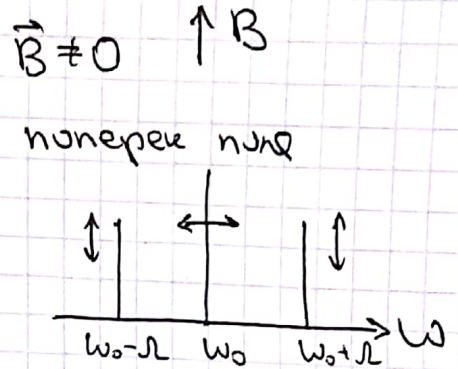 B⃗ ≠ 0
B
поперек поля
ω₀-Ω ω₀ ω₀+Ω ω